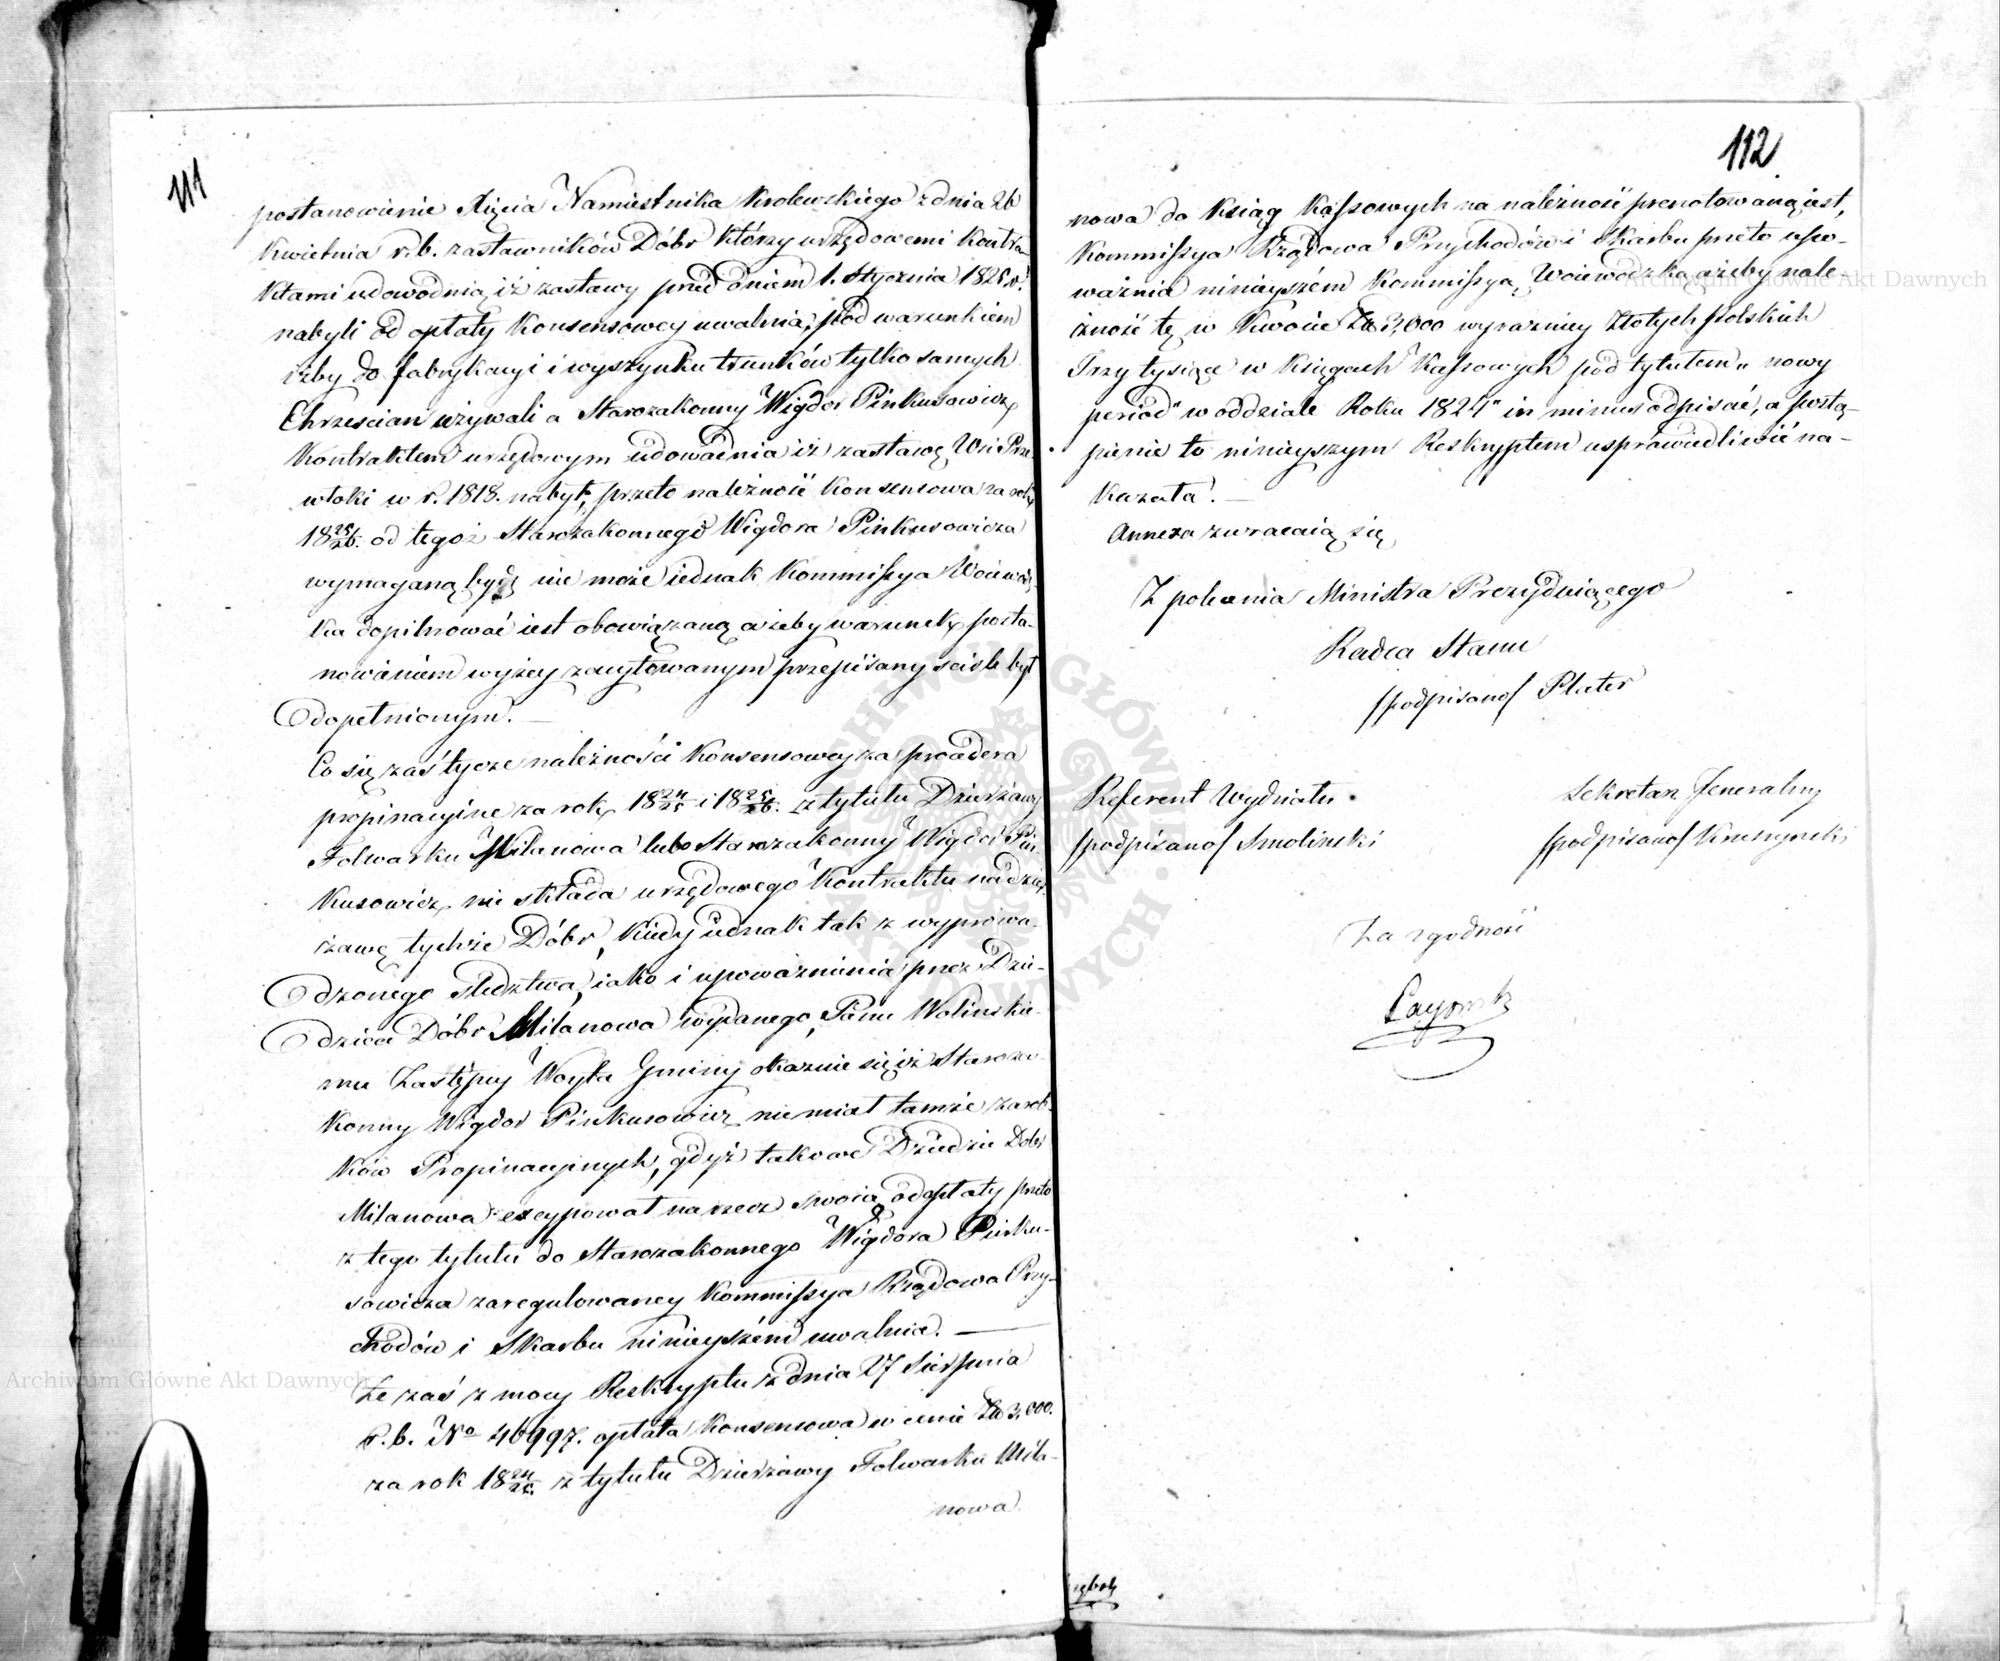 111
postanowienie Xięcia Namiestnika Krolewskiego z dnia 26
Kwietnia r.b. zastawników Dóbr którzy urzędowemi Kontra-
ktami udowodnią, iż zastawy przed dniem 1. Stycznia 1825 r.
nabyli od opłaty Konsensowey uwalnia, pod warunkiem
iżby do fabrykacyi i wyszynku trunków tylko samych
Chrzescian używali a Starozakonny Wigdor Pinkusowicz
Kontraktem urzędowym udowadnia iż zastawę Wsi Prze
włoki w r. 1818. nabył, przeto należność Konsensowa za rok
18 25/26. od tegoż Starozakonnego Wigdora Pinkusowicza
wymaganą bydź nie może jednak Kommissya Woiewódz-
ka dopilnować iest obowiązaną ażeby warunek posta-
nowieniem wyżey zacytowanym przepisany scisle był
dopełnionym. —
Co się zaś tycze należności Konsensowey za
propinacyine za rok 18 24/25 i 18 25/26. z tytułu Dzierżawy
Folwarku Milanowa lubo Starozakonny Wigdor Pin-
kusowicz nie składa urzędowego Kontraktu na dzier-
żawę tychże Dóbr, Kiedy iednak tak z wyprowa-
dzonego śledztwa, iako i upoważnienia przez Dzie-
dzica Dóbr Milanowa wydanego, Panu Wolinskie-
mu Zastępcy Woyta Gminy okazuie się iż Staroza-
konny Wigdor Pinkusowicz nie miał tamże zarob-
ków Propinacyjnych, gdyż takowe Dziedzic Dóbr
Milanowa excypował na rzecz swoią, od opłaty przeto
z tego tytułu do Starozakonnego Wigdora Pinku-
sowicza zaregulowaney Kommissya Rządowa Przy-
chodów i Skarbu ninieyszém uwalnia. —
Że zaś z mocy Reskryptu z dnia 27 Sierpnia
r.b. No 46997. opłata Konsensowa w cenie Zł 3,000.
za rok 18 24/25. z tytułu Dzierżawy Folwarku Mila-
nowa
112
nowa do Ksiąg Kassowych na należność prenotowaną iest,
Kommissya Rządowa Przychodów i Skarbu przeto upo-
ważnia ninieyszém Kommissyą Woiewódzką ażeby nale-
żność tę w Kwocie Zł 3,000 wyrazniey Złotych polskich
Trzy tysiące w Księgach Kassowych pod tytułem „nowy
period" w oddziale Roku 1824" in minus odpisać, a postą-
pienie to ninieyszym Reskryptem usprawiedliwić na-
kazała. —
Annexa zwracaią się
Z polecenia Ministra Prezyduiącego
Radca Stanu
/podpisano/ Plater
Referent Wydziału
/podpisano/ Smolinski
Sekretarz Jeneralny
/podpisano/ Kruszynski
Za zgodność
Archiwum Główne Akt Dawnych
Archiwum Główne Akt Dawnych
ARCHIWUM GŁÓWNE AKT DAWNYCH